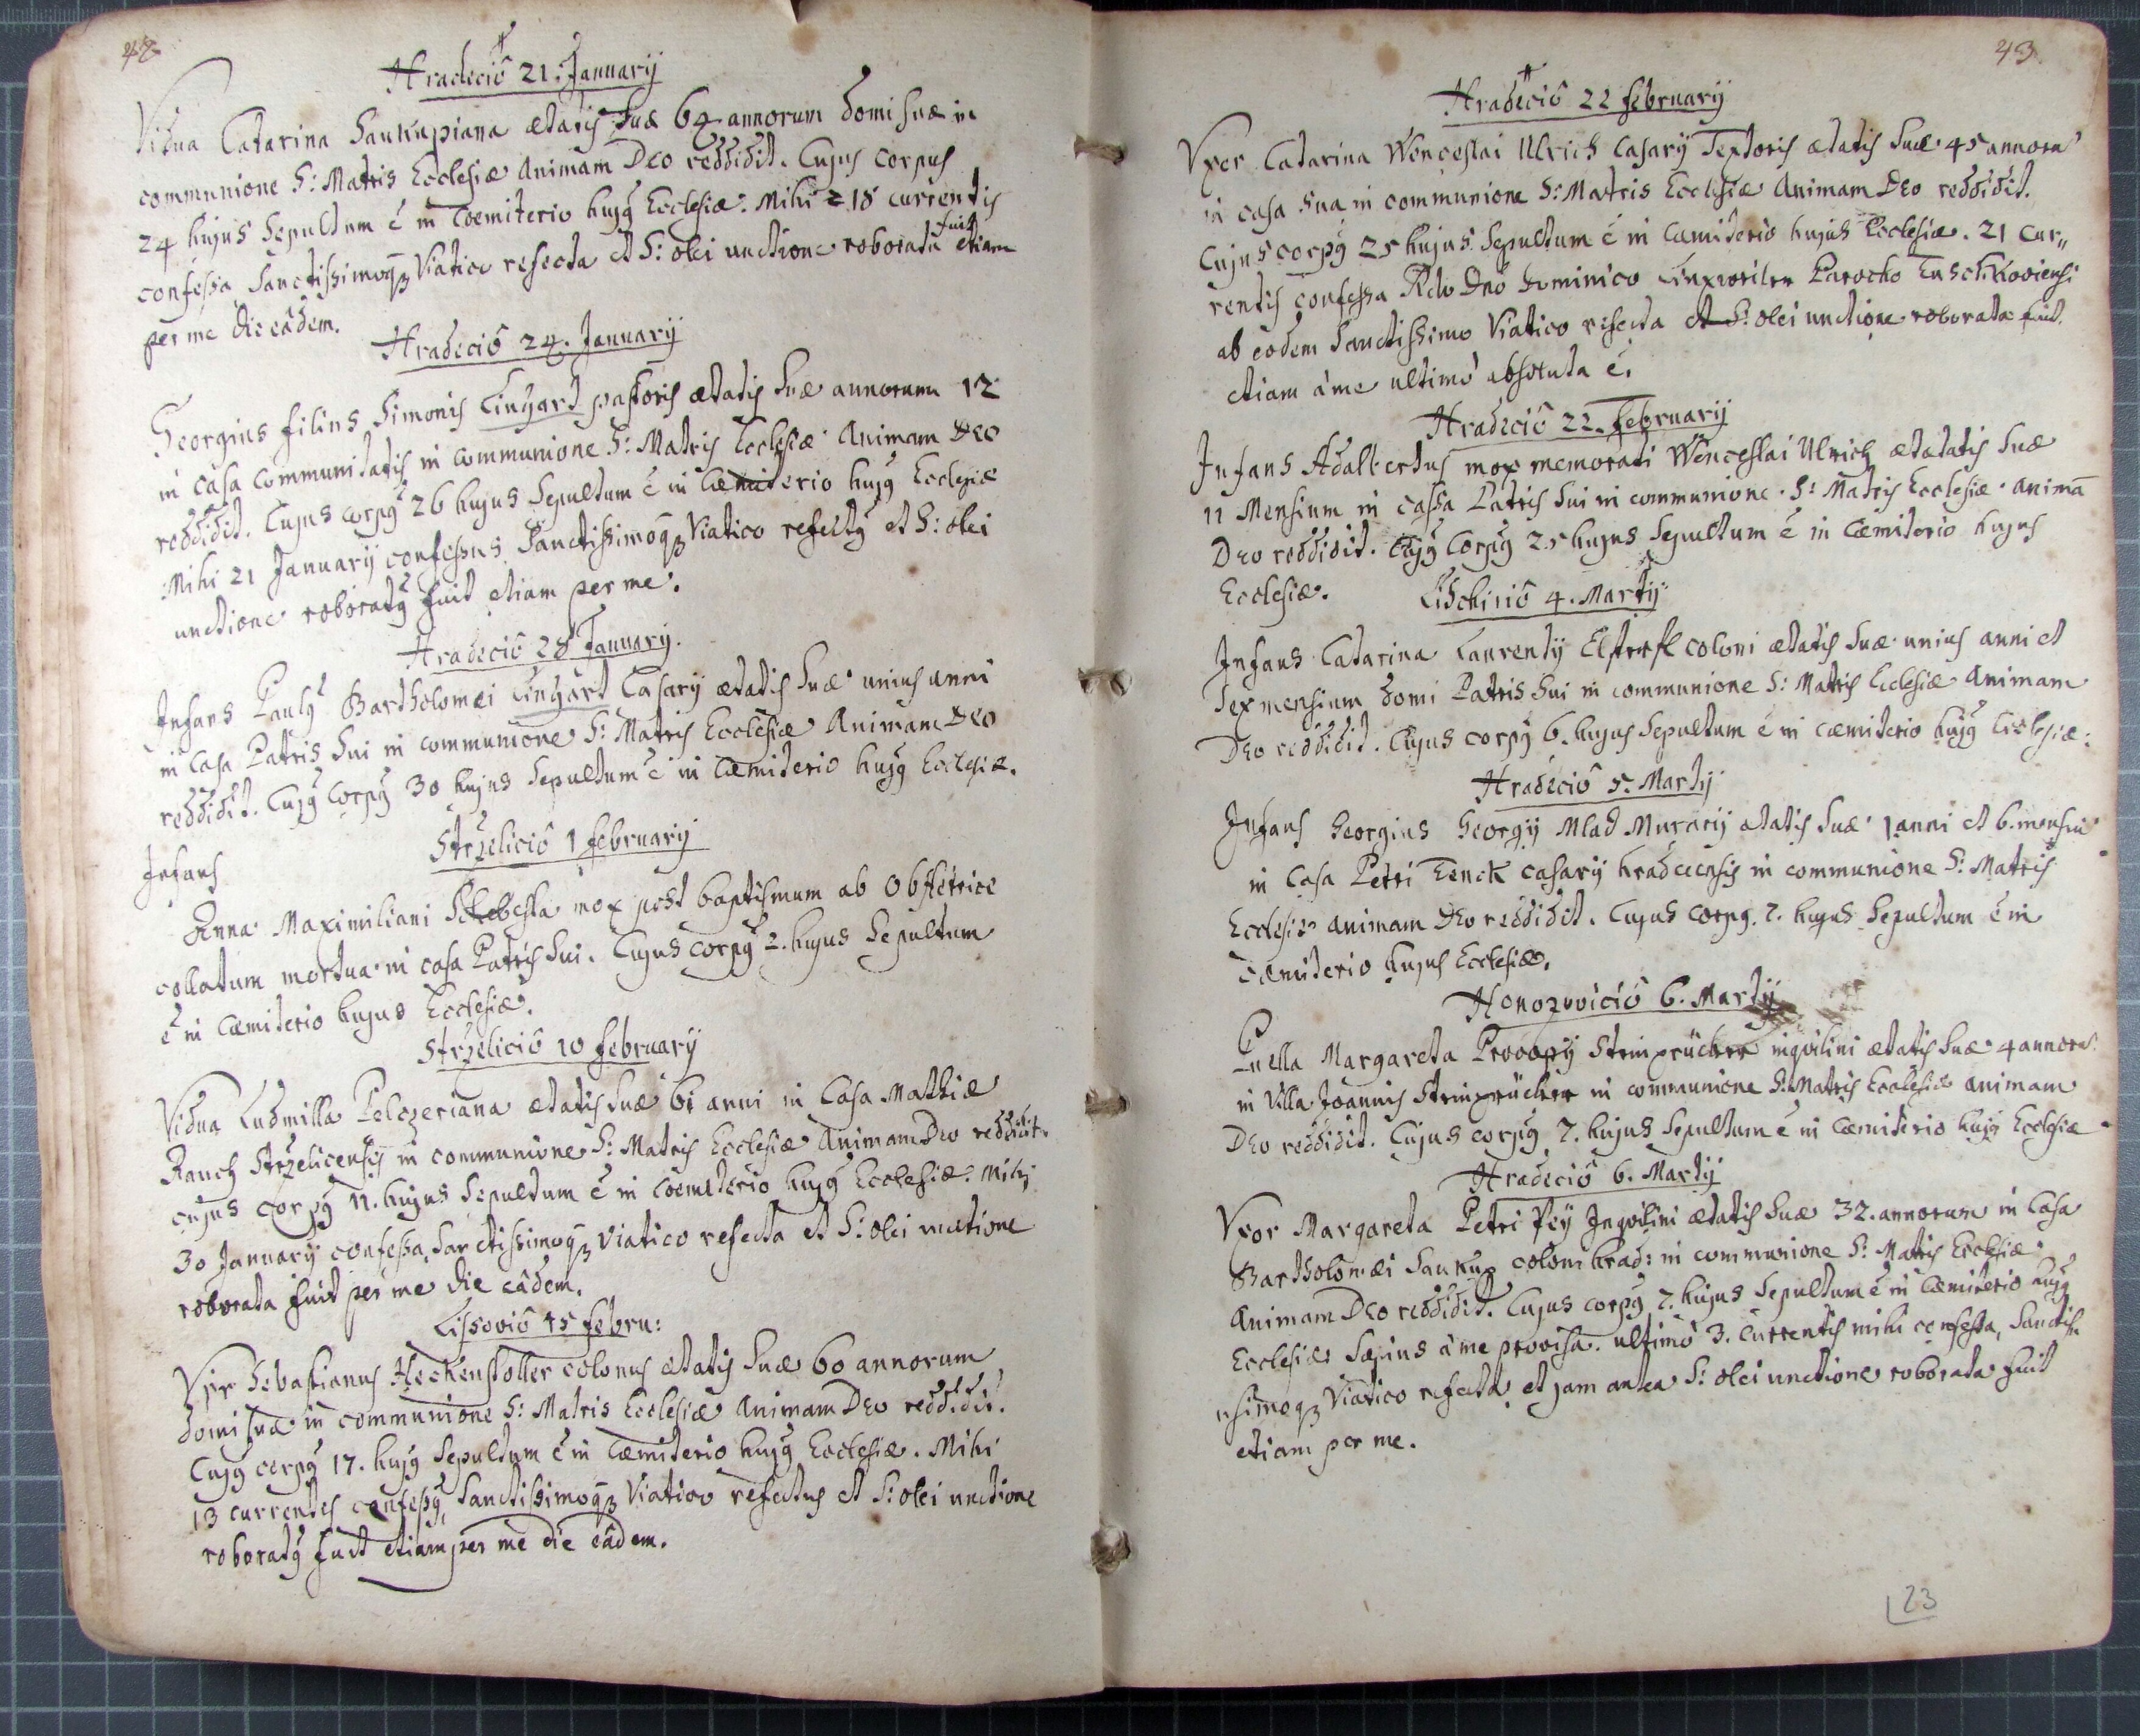 42
Hradeciô 21. Januarÿ
Vidua Catarina Saukupiana ætatis suæ 64 annorum domi suæ in
communione S: Matris Ecclesiæ Animam Deo reddidit. Cujus corpus
24 hujus Sepultum ē in Coemiterio hujꝰ Ecclesiæ. Mihi 18 currentis
confessa, Sanctissimoqꝫ Viatico refecta et S: olei unctione roborata fuit etiam
per me die eâdem.
Hradeciô 24. Januarÿ
Georgius filius Simonis Lingart pastoris ætatis suæ annorum 12
in casa Communitatis in communione S: Matris Ecclesiæ Animam Deo
reddidit. Cujus corpꝰ 26 hujus Sepultum ē in Cæmiterio hujꝰ Ecclesiæ
Mihi 21 Januarÿ confessus, Sanctissimoqꝫ Viatico refectꝰ et S: olei
unctione roboratꝰ fuit etiam per me.
Hradeciô 28 Januarÿ.
Infans Paulꝰ Bartholomæi Lingart Casarÿ ætatis suæ unius anni
in Casa Patris sui in communione S: Matris Ecclesiæ Animam Deo
reddidit. Cujꝰ Corpꝰ 30 hujus Sepultum ē in Cæmiterio hujꝰ Ecclesiæ.
Strzeliciô 1 februarÿ
Infans
Anna Maximiliani Schebesta mox post baptismum ab Obstetrice
collatum mortua in casa Patris sui. Cujus corpꝰ 2. hujus Sepultum
ē in Cæmiterio hujus Ecclesiæ.
Strzeliciô 10 februarÿ
Vidua Ludmilla Pelczeriana ætatis suæ 61 anni in Casa Mathiæ
Rauch Strzelicensis in communione S: Matris Ecclesiæ Animam Deo reddidit.
cujus corpꝰ 11. hujus Sepultum ē in Coemiterio hujꝰ Ecclesiæ. Mihi
30 Januarÿ confessa, Sanctissimoqꝫ Viatico refecta et S: olei unctione
roborata fuit per me die eâdem.
Lissoviô 15 febru:
Vir Sebastianus Heckenstoller colonus ætatis suæ 60 annorum
domi suæ in communione S: Matris Ecclesiæ Animam Deo reddidit.
Cujꝰ corpꝰ 17. hujꝰ Sepultum ē in Cæmiterio hujꝰ Ecclesiæ. Mihi
13 currentis confessꝰ, Sanctissimoqꝫ Viatico refectus et S: olei unctione
roboratꝰ fuit etiam per me die eâdem.
43
Hradeciô 22 februarÿ
Vxor Catarina Wenceslai Ulrich Casarÿ Textoris ætatis suæ 45 annorū
in casa sua in communione S: Matris Ecclesiæ Animam Deo reddidit.
Cujus corpꝰ 25 hujus Sepultum ē in Cæmiterio hujus Ecclesiæ. 21 cur„
rentis confessa Rdo Dno Dominico Parocho
ab eodem Sanctissimo Viatico refecta et S: olei unctione roborata fuit.
etiam à me ultimô absoluta ē.
Hradeciô 22. februarÿ
Infans Adalbertus mox memorati Wenceslai Ulrich ætatatis suæ
11 Mensium in cassa Patris sui in communione S: Matris Ecclesiæ animā
Deo reddidit. Cujꝰ Corpꝰ 25 hujus Sepultum ē in Cæmiterio hujus
Ecclesiæ.
Lischiniô 4. Martÿ
Infans Catarina Laurentÿ coloni ætatis suæ unius anni et
sex mensium domi Patris sui in communione S: Matris Ecclesiæ Animam
Deo reddidit. Cujus corpꝰ 6. hujus Sepultum ē in cæmiterio hujꝰ Ecclesiæ.
Hradeciô 5. Martÿ
Infans Georgius Georgÿ Mlad Murarÿ ætatis suæ 1 anni et 6. mensiū
in Casa Petri Lenck casarÿ hradecensis in communione S: Matris
Ecclesiæ animam Deo reddidit. Cujus corpꝰ. 7. hujus Sepultum ē in
cæmiterio hujus Ecclesiæ.
Honozoviciô 6. Martÿ
Puella Margareta Procopÿ Steinprücker inqvilini ætatis suæ 4 annorū
in Villa Joannis Steinprücker in communione S: Matris Ecclesiæ animam
Deo reddidit. Cujus corpꝰ 7. hujus Sepultum ē in Cæmiterio hujꝰ Ecclesiæ
Hradeciô 6. Martÿ
Vxor Margareta Petri Peÿ Inqvilini ætatis suæ 32. annorum in Casa
Bartholomæi Saukup coloni hrad: in communione S: Matris Ecclesiæ
Animam Deo reddidit. Cujus corpꝰ 7. hujus Sepultum ē in Cæmiterio hujꝰ
Ecclesiæ sæpius à me provisa. ultimô 3. Currentis mihi confessa, Sanctis„
simoqꝫ Viatico refecta, et jam antea S: olei unctione roborata fuit
etiam per me.
23